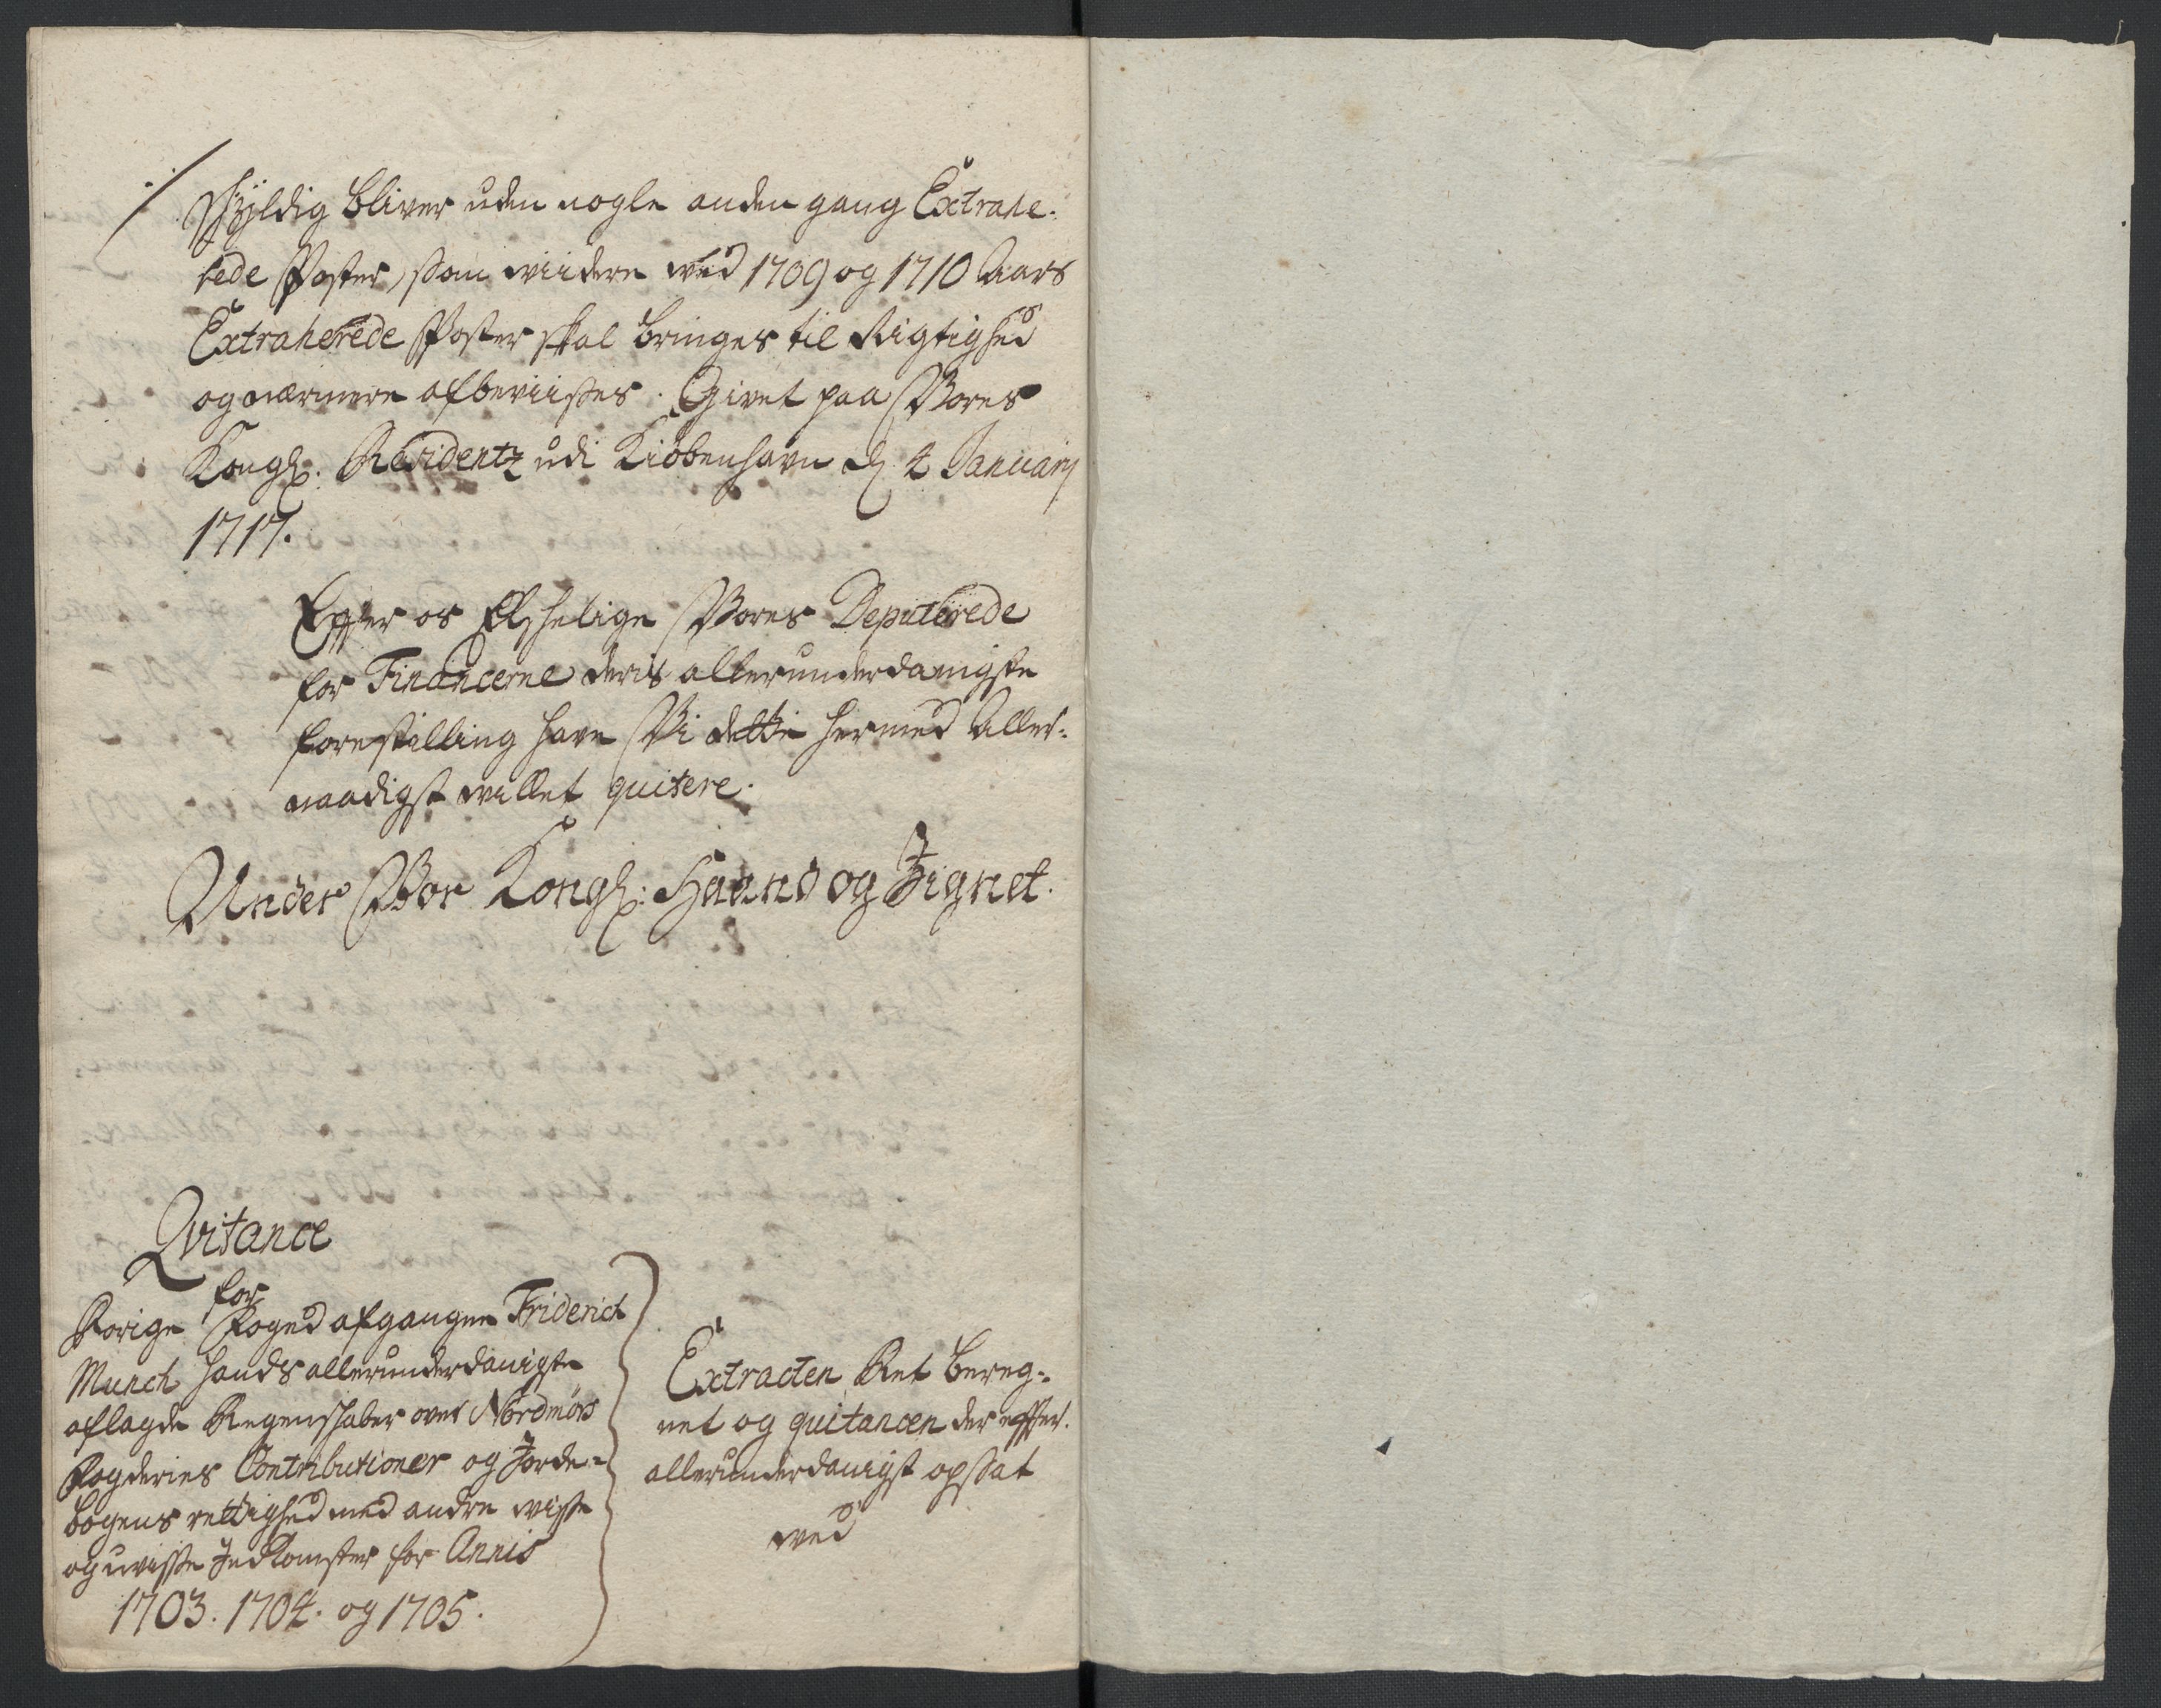 ./. Skyldig bliver uden nogle anden gang Extrahe-
rede Poster, som viidere ved 1709 og 1710 Aars
Extraherede Poster skal bringes til Rigtighed
og nærmere afbeviises. Givet paa Vores
Kongl. Residentz udi Kiöbenhavn d. 4 January
1717.
Effter os Elskelige Vores Deputerede
for Financerne deris allerunderdanigste
forestilling have Vi dette hermed Aller-
naadigst villet quitere.
Under Vor Kongl: Haand og Zignet.
Qvitance
for
Forige Foged afgangne Friderich
Munch hands allerunderdanigste
aflagde Regenskaber over Nordmörs
Fogderies Contributioner og Jorde-
bogens rettighed med andre visse
og uvisse Indkomster for Annis
1703. 1704. og 1705.
Extracten Ret bereg-
net og quitancen der effter
allerunderdanigst opsat
ved